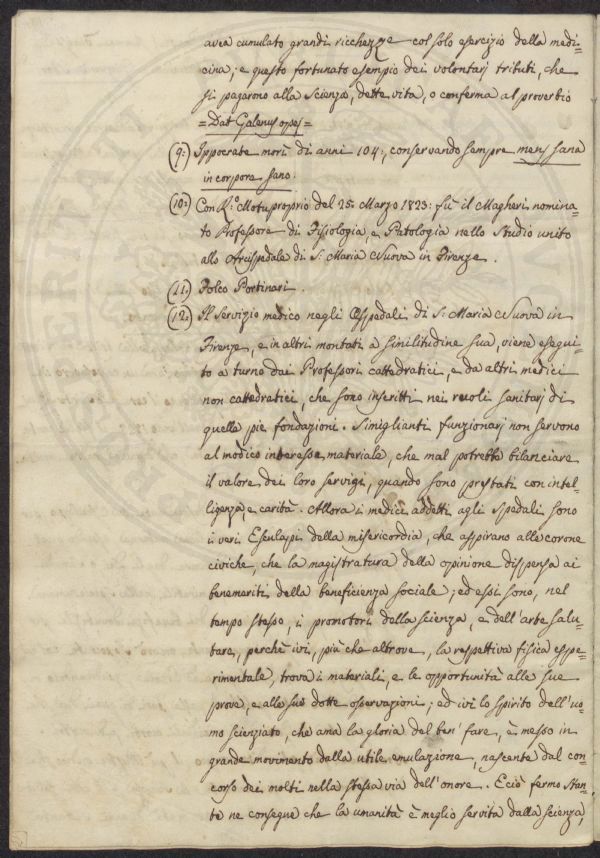 avea cumulato grandi ricchezze col solo esercizio della medi-
cina; e questo fortunato esempio dei volontarj tributi, che
si pagarono alla Scienza, dette vita, o conferma al proverbio
=Dat Galenus opes=
(9.) Ippocrate morì di anni 104:, conservando sempre mens sana
in corpore sano.
(10.) Con R.º Motuproprio del 25. Marzo 1823: fù il Magheri nomina-
to Professore di Fisiologia, e Patologia nello Studio unito
allo Arcispedale di S. Maria Nuova in Firenze.
(11.) Folco Portinari.
(12.) Il Servizio medico negli Ospedali di S. Maria Nuova in
Firenze, e in altri montati a similitudine sua, viene esegui-
to a turno dai Professori cattedratici, e da altri medici
non cattedratici, che sono inscritti nei ruoli sanitarj di
quelle pie fondazioni. Simiglianti funzionarj non servono
al modico interesse materiale, che mal potrebbe bilanciare
il valore dei loro servigj, quando sono prestati con intel-
ligenza, e carità. Allora i medici addetti agli spedali sono
i veri Esculapj della misericordia, che aspirano alle corone
civiche, che la magistratura della opinione dispensa ai
benemeriti della beneficienza sociale; ed essi sono, nel
tempo stesso, i promotori della scienza, e dell'arte salu-
tare, perchè ivi, più che altrove, la respettiva fisica espe-
rimentale, trova i materiali, e le opportunità alle sue
prove, e alle sue dotte osservazioni; ed ivi lo spirito dell'uo-
mo scienziato, che ama la gloria del ben' fare, è messo in
grande movimento dalla utile emulazione, nascente dal con-
corso dei molti nella stessa via dell'onore. E ciò fermo stan-
te ne consegue che la umanità è meglio servita dalla scienza,